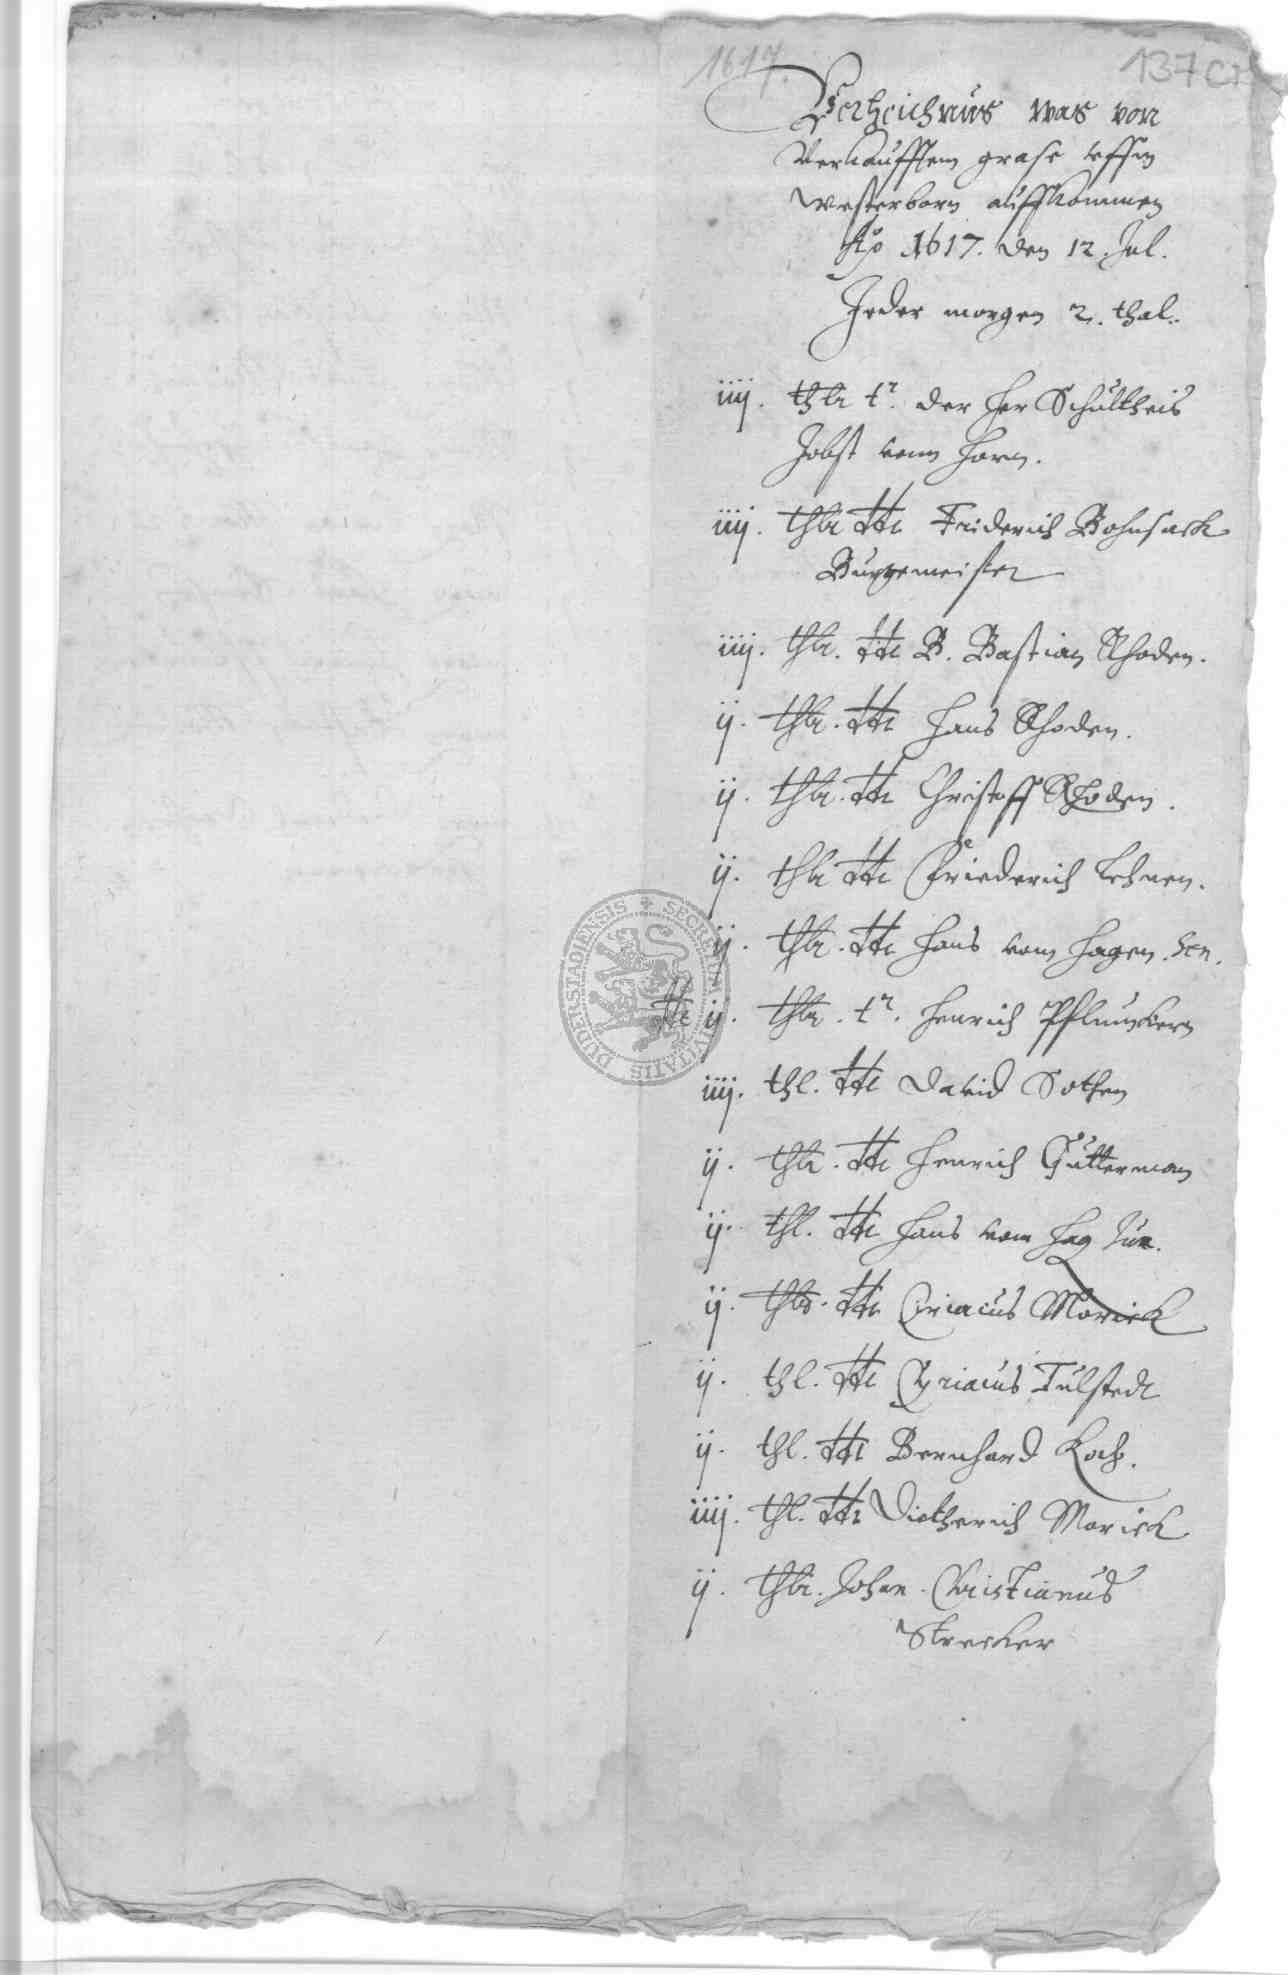 1617.
137 cr
Vertzeichnus was von
Verkaufftem grase uffm
Westerborn auffkommen
Ao 1617. den 12. Jul.
Jeder morgen 2. thal.
iiij. thlr tr. der Her Schultheis
Jobst vom Horn.
iiij. thlr dtt Friderich Bohnsack
Burgemeister
iiij. thlr. dtt B. Bastian Rhoden.
ij. thlr. dtt Hans Rhoden.
ij. thlr. dtt Christoff Rhoden.
ij. thlr dtt Friederich Lehnen.
ij. thlr. dtt Hans vom Hagen. Sen.
dtt ij. thlr. tr. Henrich
iiij. thl. dtt David Sothen
ij. thlr. dtt Henrich Gutterman
ij. thl. dtt Hans vom Hag Jun.
ij. thlr. dtt Ciriacus Morick
ij. thl. dtt Cyriacus Tulstedt
ij. thl. dtt Bernhard Koch.
iiij. thl. dtt Dietherich Morick
ij. thlr. Johan. Christianus
Strecker
SECRETUM CIVITATIS DUDERSTADIENSIS